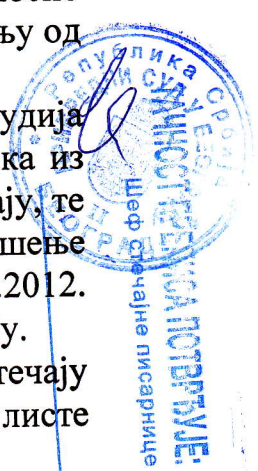 њу од
удија
ка из
ају, те
шење
.2012.
у.
течају
листе
Република Србија
БЕОГРАД
ПОТВРЂУЈЕ:
Шеф стечајне писарнице